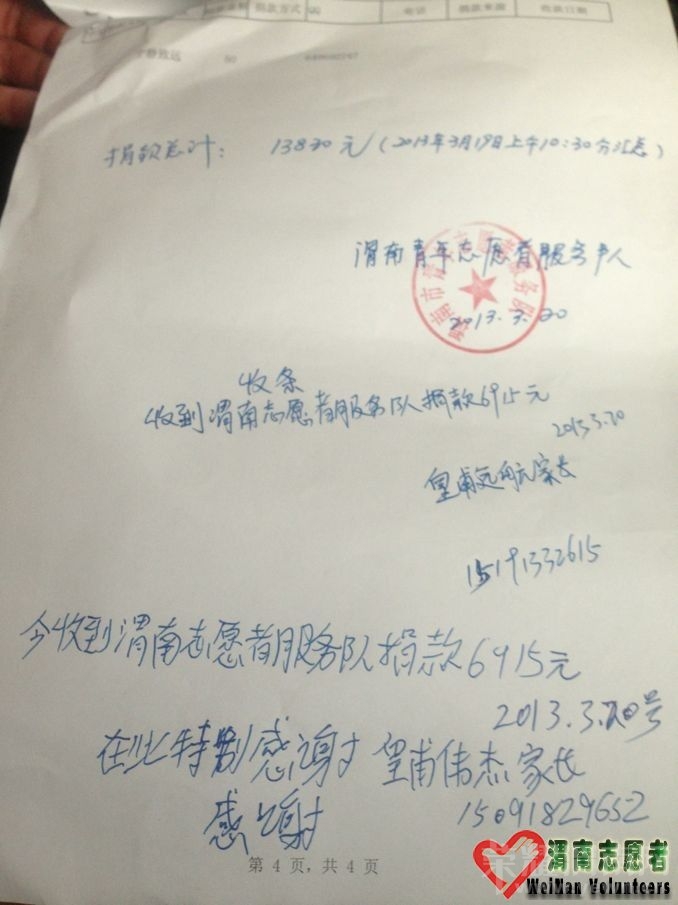 捐款方式 QQ 电话 捐款来源 收款日期
致远 50
捐款总计: 13830元/(2013年3月19日上午10:30分汇总)
渭南青年志愿者服务队
2013.3.20
收条
收到渭南志愿者服务队捐款6915元
2013.3.20
皇甫远航家长
15191332615
今收到渭南志愿者服务队捐款6915元
2013.3.20号
在此特别感谢 皇甫伟杰家长
感谢 15091829652
第 4 页, 共 4 页
渭南志愿者
WeiNan Volunteers